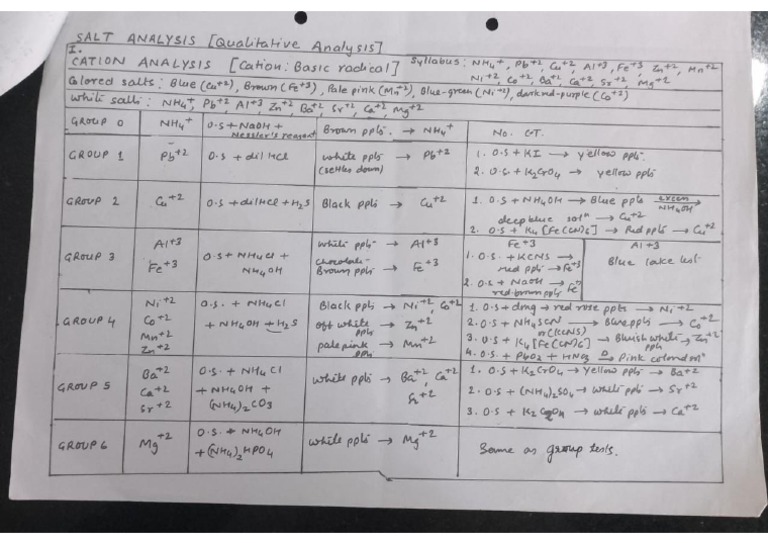 SALT ANALYSIS [Qualitative Analysis]
I.
CATION ANALYSIS [Cation: Basic radical]
Syllabus: NH4+, Pb+2, Cu+2, Al+3, Fe+3, Zn+2, Mn+2
Ni+2, Co+2, Ba+2, Ca+2, Sr+2, Mg+2
Colored salts: Blue (Cu+2), Brown (Fe+3), Pale pink (Mn+2), Blue-green (Ni+2), dark red-purple (Co+2)
White salts: NH4+, Pb+2, Al+3, Zn+2, Ba+2, Sr+2, Ca+2, Mg+2
GROUP 0
NH4+
O.S + NaOH +
Nessler's reagent
Brown ppts. → NH4+
No. C.T.
GROUP 1
Pb+2
O.S + dil HCl
White ppts → Pb+2
(settles down)
1. O.S + KI → yellow ppts.
2. O.S + K2CrO4 → yellow ppts
GROUP 2
Cu+2
O.S + dil HCl + H2S
Black ppts → Cu+2
1. O.S + NH4OH → Blue ppts excess NH4OH →
deep blue sol^n → Cu+2
2. O.S + K4[Fe(CN)6] → Red ppts → Cu+2
GROUP 3
Al+3
Fe+3
O.S + NH4Cl +
NH4OH
White ppts → Al+3
Chocolate-
Brown ppts → Fe+3
Fe+3
1. O.S. + KCNS →
red ppts → Fe+3
2. O.S + NaOH →
red brown ppts Fe+3
Al+3
Blue lake test.
GROUP 4
Ni+2
Co+2
Mn+2
Zn+2
O.S. + NH4Cl
+ NH4OH + H2S
Black ppts → Ni+2, Co+2
off white ppts → Zn+2
pale pink ppts → Mn+2
1. O.S + dmg → red rose ppts → Ni+2
2. O.S + NH4SCN → Blue ppts → Co+2
or (KCNS)
3. O.S + K4[Fe(CN)6] → Bluish white ppts → Zn+2
4. O.S. + PbO2 + HNO3 Δ→ Pink colored
GROUP 5
Ba+2
Ca+2
Sr+2
O.S. + NH4Cl
+ NH4OH +
(NH4)2CO3
White ppts → Ba+2, Ca+2
Sr+2
1. O.S + K2CrO4 → Yellow ppts → Ba+2
2. O.S + (NH4)2SO4 → white ppts → Sr+2
3. O.S + K2C2O4 → white ppts → Ca+2
GROUP 6
Mg+2
O.S. + NH4OH
+ (NH4)2HPO4
White ppts → Mg+2
Same as group tests.